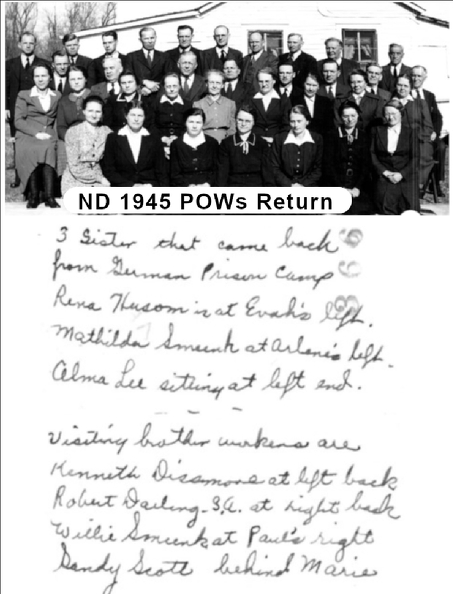 ND 1945 POWs Return
3 Sister that came back
from German Prison Camp
Rena Husom is at Evah's left.
Mathilda Smeenk at Arlene's left.
Alma Lee sitting at left end.
Visiting brother workers are
Kenneth Dissmore at left back
Robert Darling - S.A. at right back
Willie Smeenk at Paul's right
Sandy Scott behind Marie